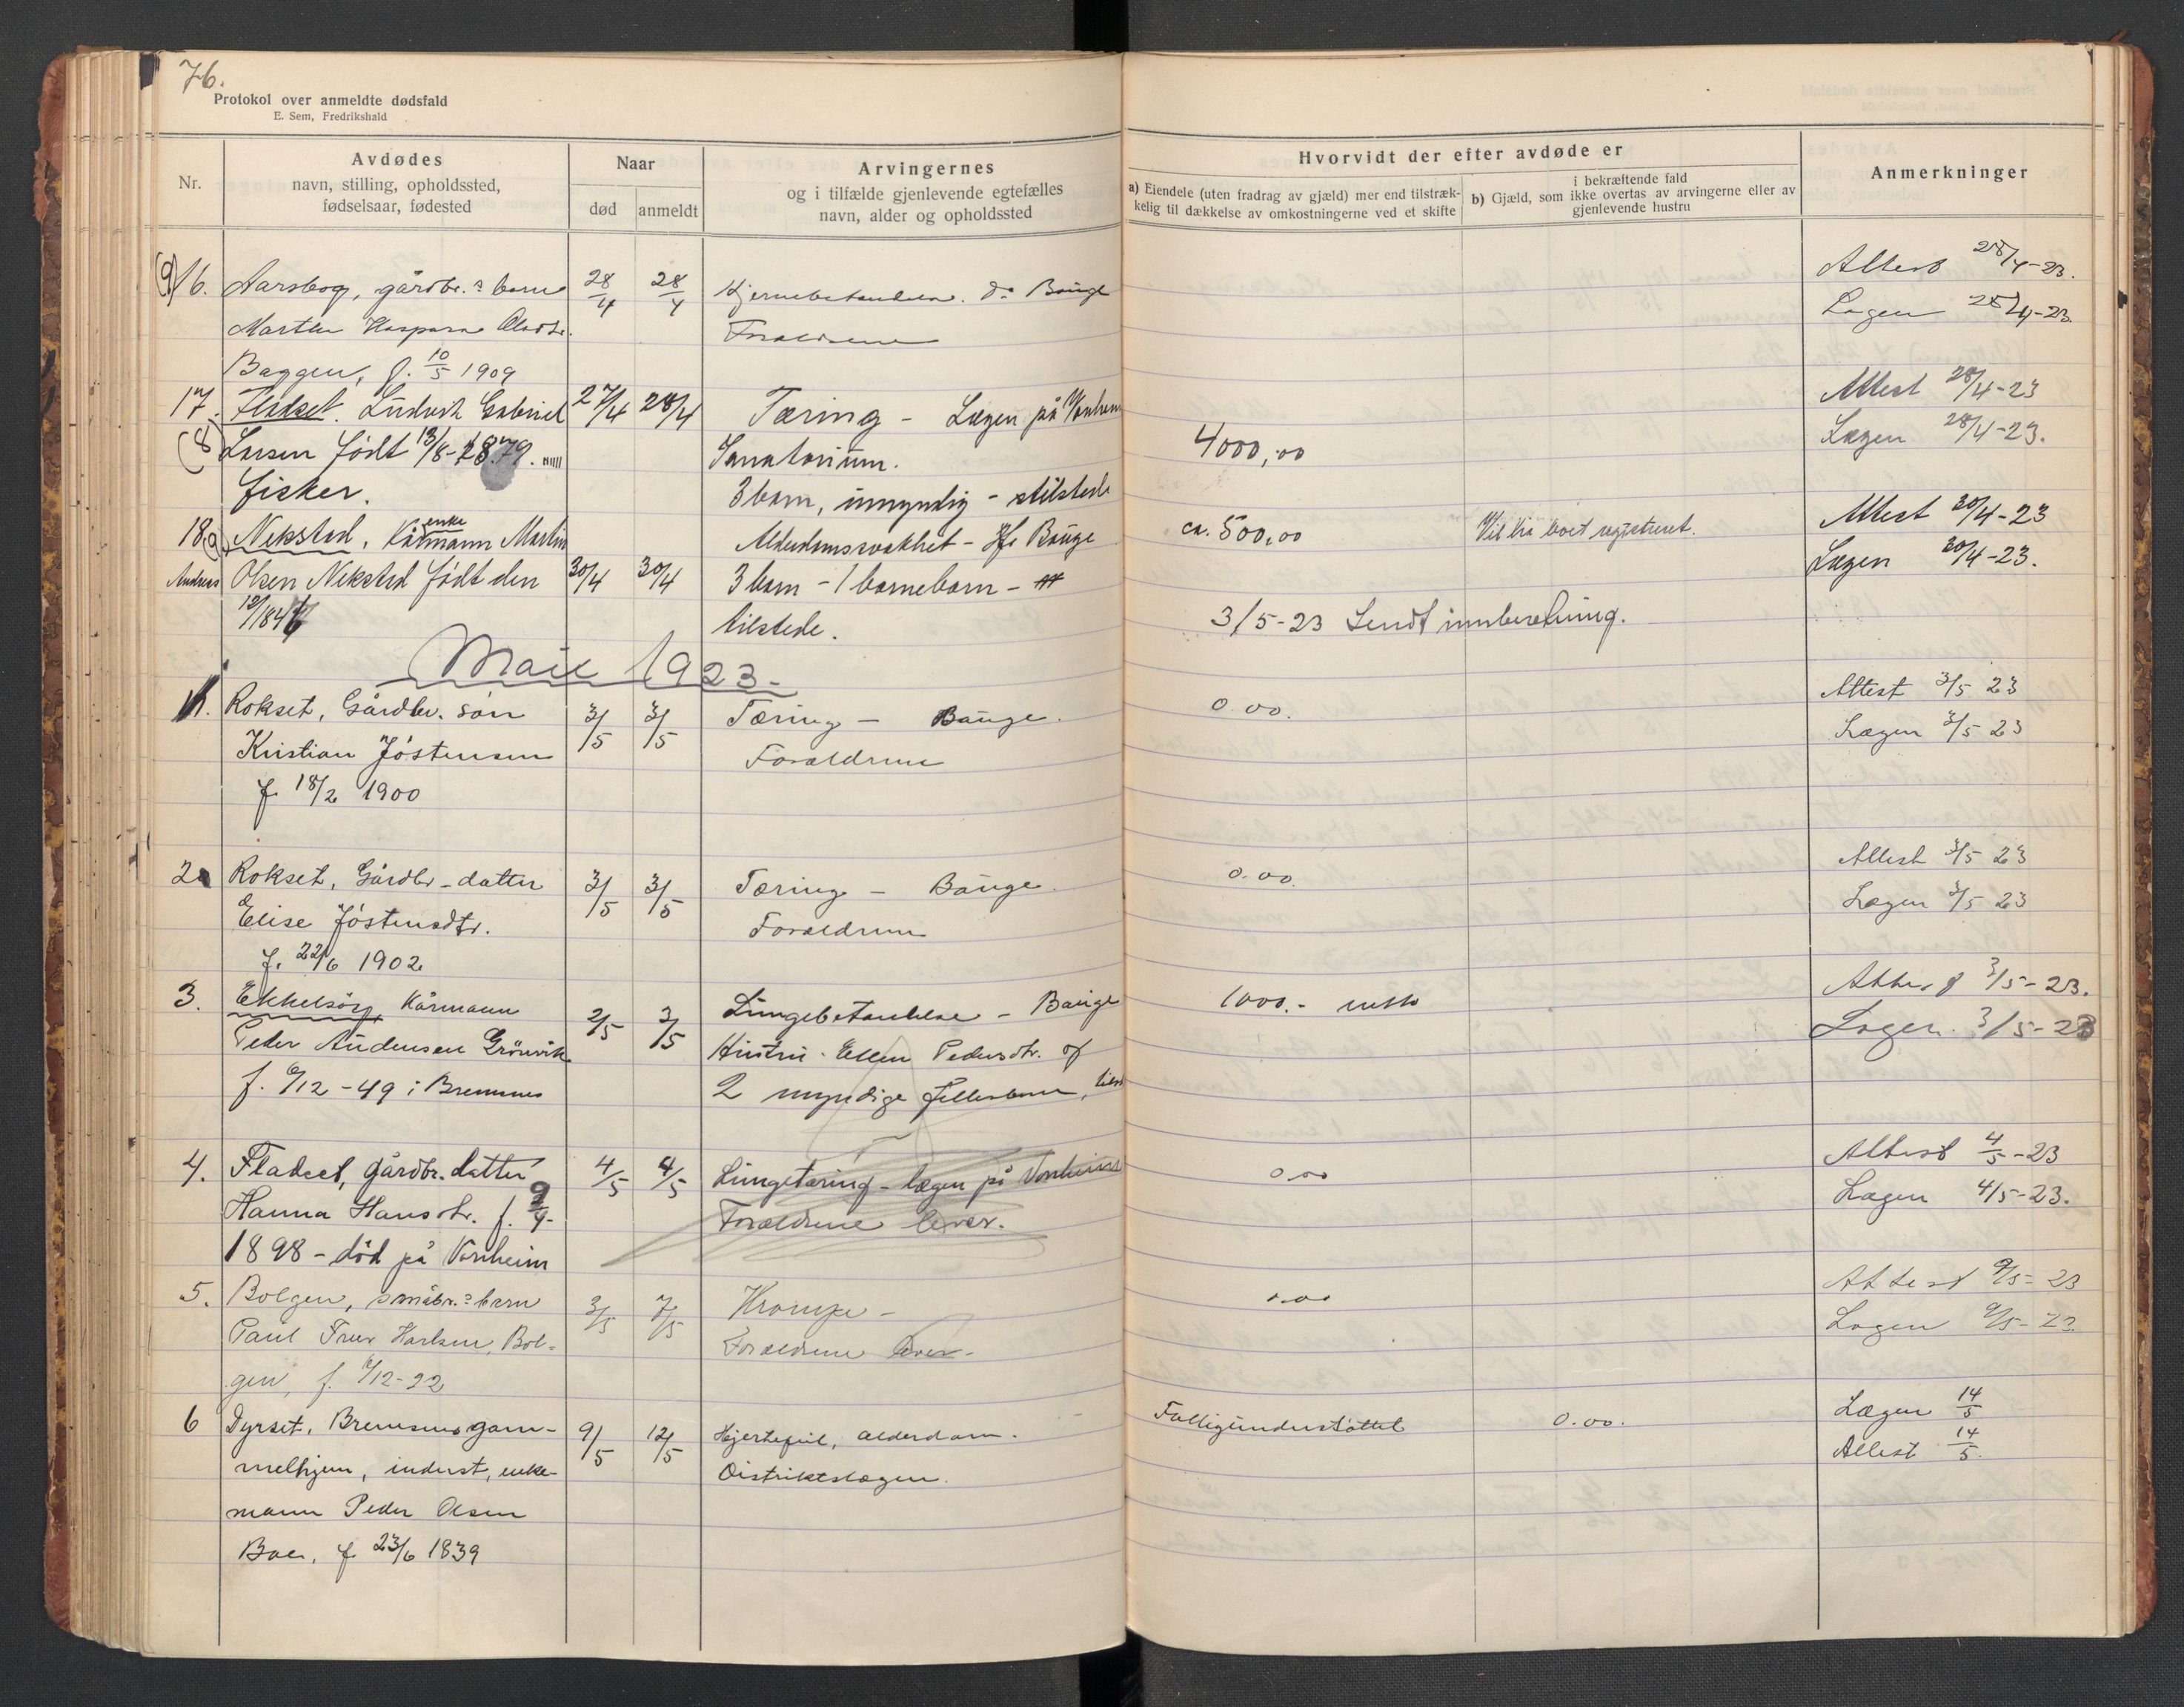 76.
Protokol over anmeldte dødsfald
E. Sem, Fredrikshald
Nr.
Avdødes
navn, stilling, opholdssted,
fødselsaar, fødested
Naar
død
anmeldt
Arvingernes
og i tilfælde gjenlevende egtefælles
navn, alder og opholdssted
Hvorvidt der efter avdøde er
a) Eiendele (uten fradrag av gjæld) mer end tilstræk-
kelig til dækkelse av omkostningerne ved et skifte
i bekræftende fald
b) Gjæld, som ikke overtas av arvingerne eller av
gjenlevende hustru
Anmerkninger
(9) 16. Aarsbog, gårdbr.s barn 28/4 28/4 Hjernebetændelse. Dr Bauge Attest 28/4-23.
Marthe Kaspara Olavsd. Forældrene Lægen 28/4-23.
Baggen, f. 10/5 1909
17. Fladset. Ludvik Gabriel 27/4 28/4 Tæring - Lægen på Vonheim Attest 28/4-23
(8) Larsen født 13/8-1879. Sanatorium. 4000,00 Lægen 28/4-23.
fisker. 3 barn, umyndig - tilstede
18. Nekstad, enke Kårmann Martin Alderdomssvakhet - Hr Bauge ca. 500,00 Vil ha boet registreret. Attest 30/4-23
Andreas Olsen Nekstad født den 30/4 30/4 3 barn - 1 barnebarn - Lægen 30/4-23.
12/1846 tilstede. 3/5-23 Sendt innberetning.
Mai 1923-
1. Rokset, Gårdbr. søn 3/5 3/5 Tæring - Bauge. 0.00. Attest 3/5 23
Kristian Jøstensen Forældrene Lægen 3/5 23
f. 18/2 1900
2. Rokset, Gårdbr-datter 3/5 3/5 Tæring - Bauge. 0.00. Attest 3/5 23
Elise Jøstensdtr. Forældrene Lægen 3/5 23
f. 22/6 1902
3. Ekkelsøy, Kårmann 2/5 3/5 Lungebetændelse - Bauge 1000.- netto Attest 3/5-23.
Peder Andersen Grønvik Hustru Ellen Pedersdtr. og Lægen 3/5-23
f. 9/12-49 i Bremsnes 2 myndige fellesbarn,
4. Fladset, gårdbr. datter 4/5 4/5 Lungetæring - lægen på Vonheim 0.00 Attest 4/5-23
Hanna Hansdtr. f. 9/4- Forældrene lever. Lægen 4/5-23.
1898 - død på Vonheim
5. Bolgen, småbr.s barn 3/5 7/5 Krampe - 0.00 Attest 9/5-23
Paul Harlsen, Bol- Forældrene lever. Lægen 9/5-23
gen, f. /12-22
6 Dyrset, Bremsnes gam- 9/5 12/5 Hjertefeil, alderdom. Fattigunderstøttet 0.00. Lægen 14/5
melhjem, inderst, enke- Distriktslægen. Attest 14/5.
mann Peder Olsen
Boe, f. 23/6 1839